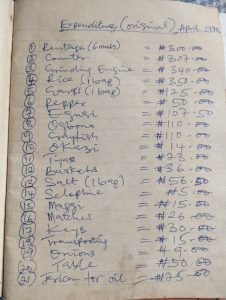 Expenditure (original) April 1990
1 Rentage (6mnts) = ₦300.00
2 Counter = ₦307.00
3 Grinding Engine = ₦340.00
4 Rice (1bag) = ₦350.00
5 Garri (1bag) = ₦125.00
6 Pepper = ₦50.00
7 Egusi = ₦107.50
8 Ogbono = ₦110.00
9 Crayfish = ₦110.00
10 Okazi = ₦14.00
11 = ₦23.00
12 Baskets = ₦36.00
13 Salt (1bag) = ₦56.50
14 Selophine = ₦5.00
15 Maggi = ₦15.00
16 Matches = ₦26.00
17 Keys = ₦30.00
18 Transporting = ₦15.00
19 Onions = ₦9.00
20 Table = ₦50.00
21 for oil = ₦25.00